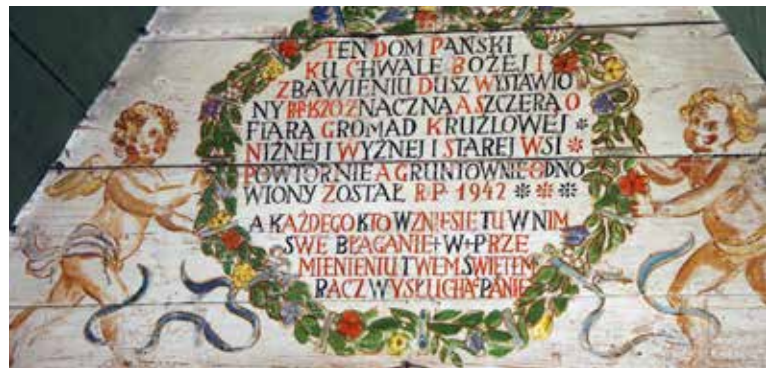 TEN DOM PAŃSKI
KU CHWALE BOŻEJ I
ZBAWIENIU DUSZ WYSTAWIO
NY RP 1520 ZNACZNA A SZCZERA O
FIARĄ GROMAD KRUŻLOWEJ *
NIŻNEJ I WYŻNEJ I STAREJ WSI *
POWTORNIE A GRUNTOWNIE ODNO
WIONY ZOSTAŁ R.P. 1942 * * *
A KAŻDEGO KTO WZNIESIE TU W NIM
SWE BŁAGANIE + W + PRZE
MIENIENIU TWEM ŚWIĘTEM
RACZ WYSŁUCHAĆ PANIE